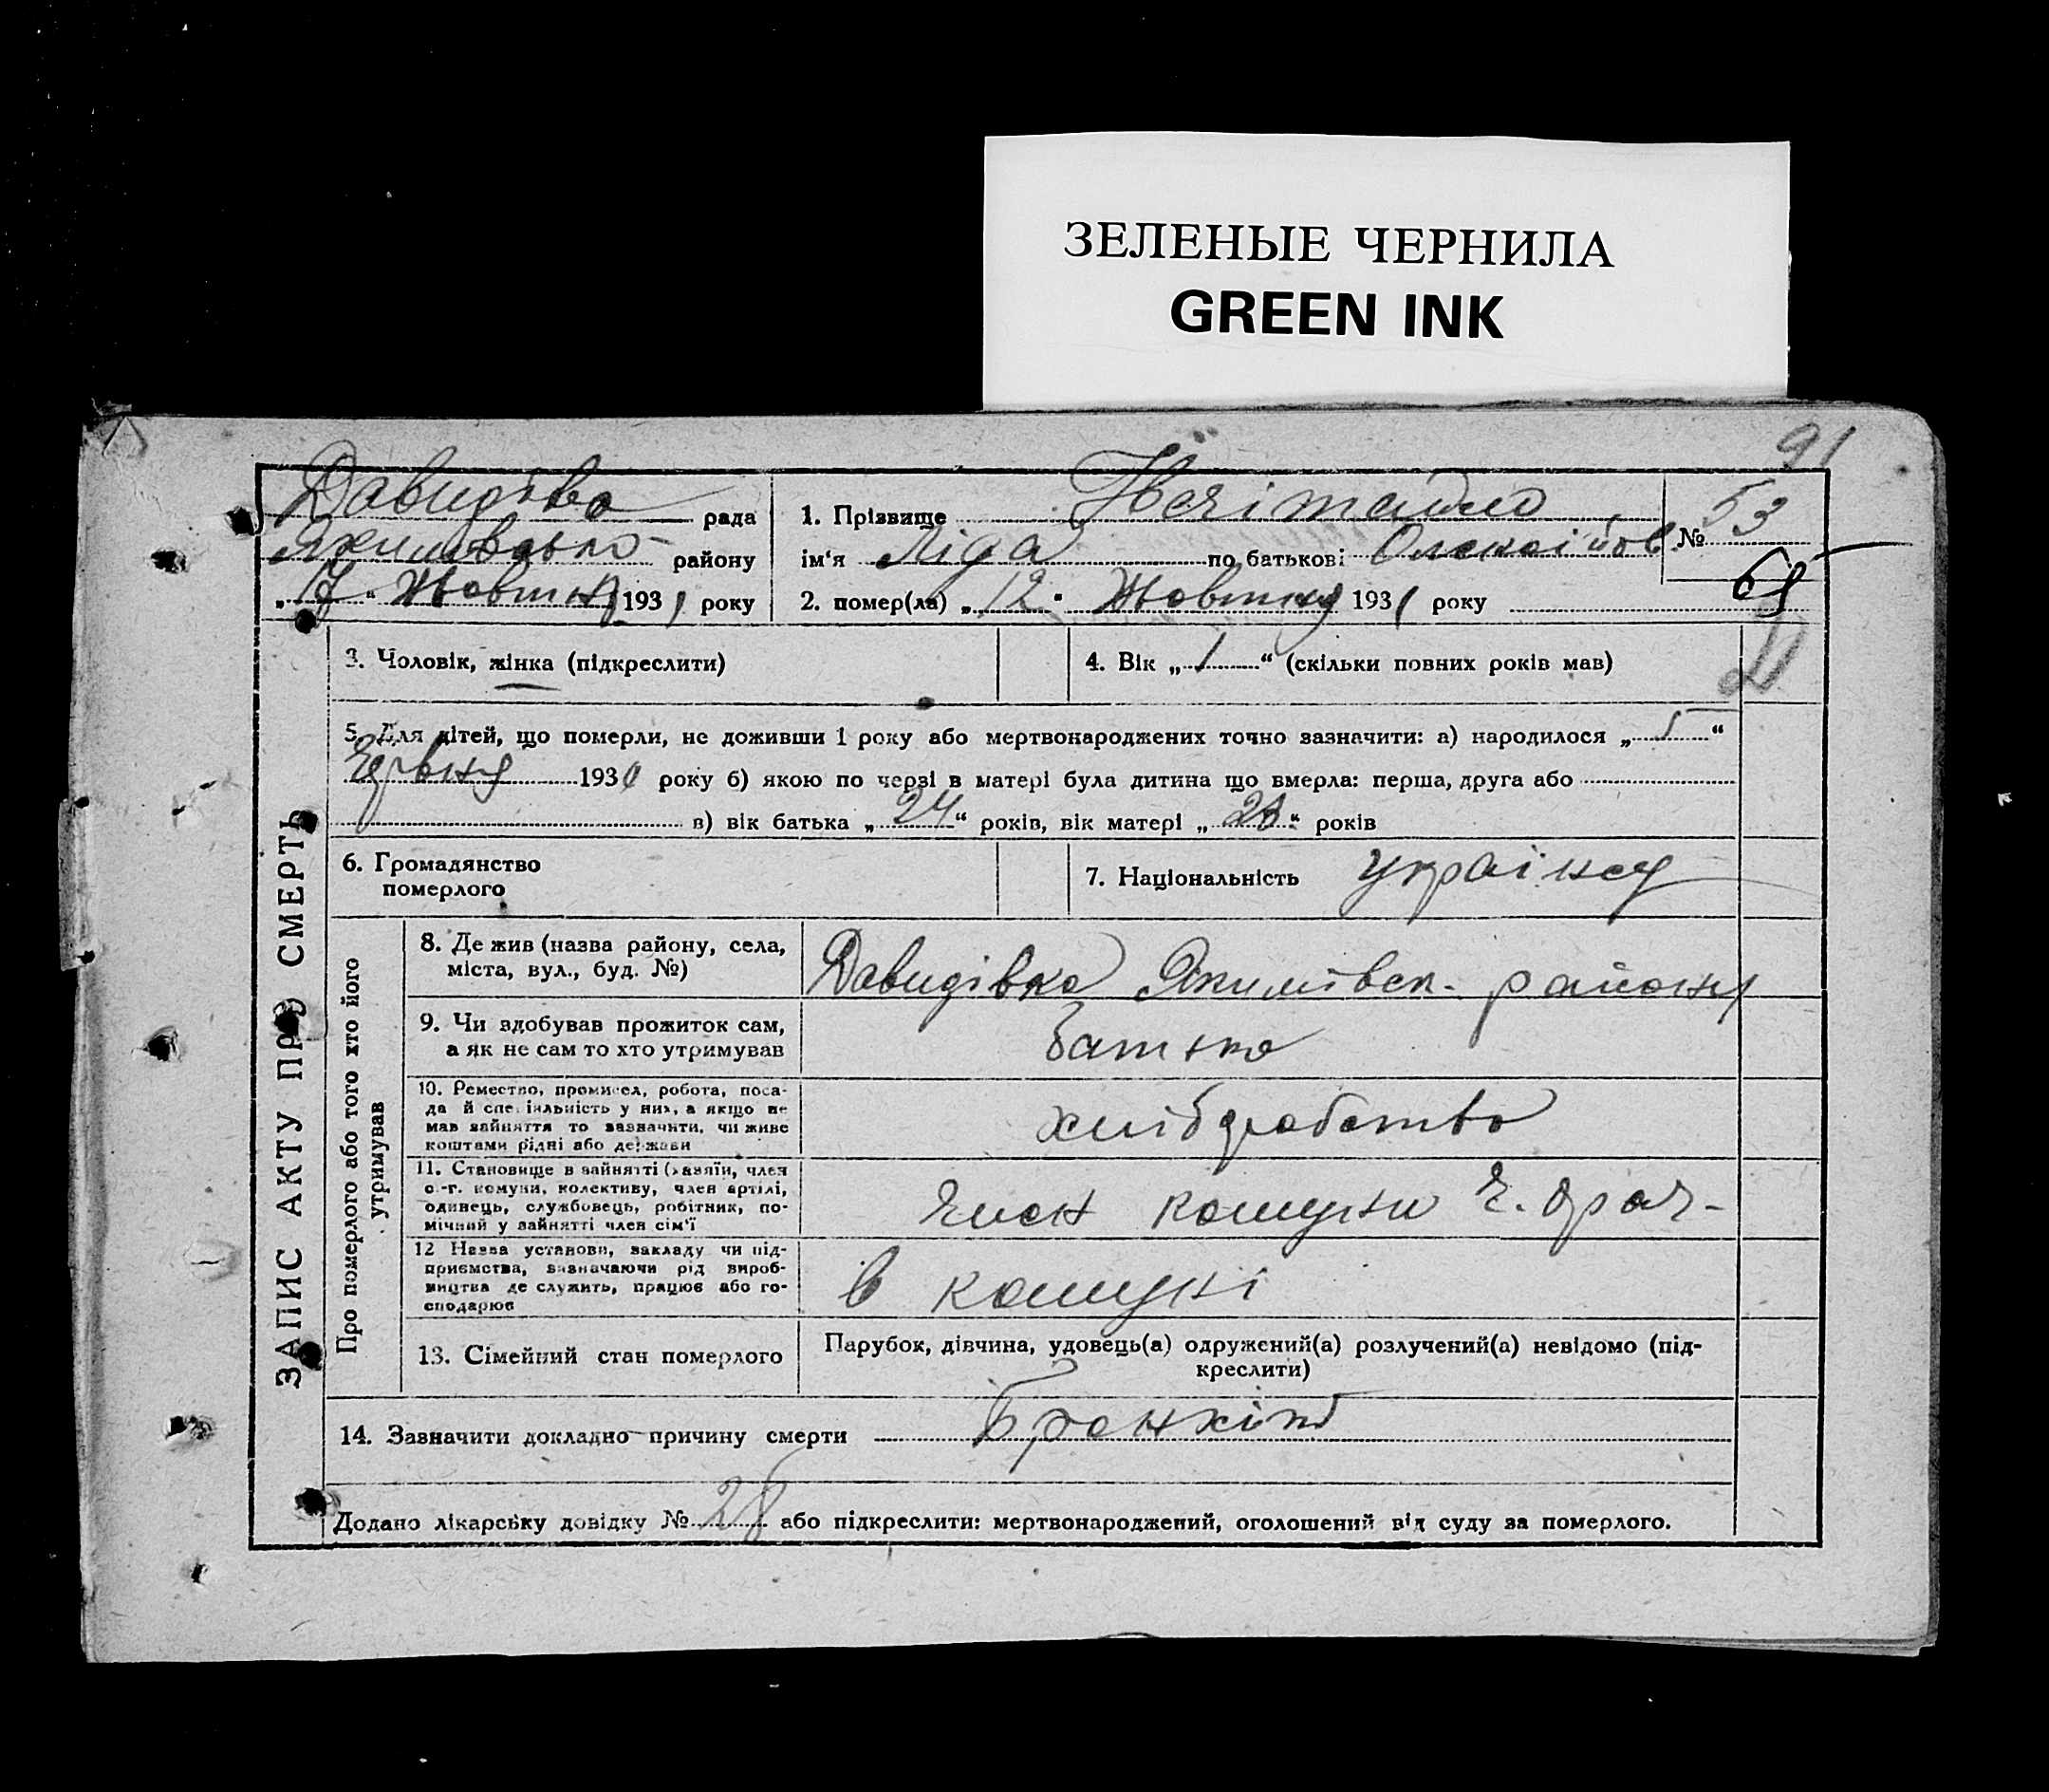 ЗЕЛЕНЫЕ ЧЕРНИЛА
GREEN INK
91
Давидівка рада
району
"17" Жовтня 1931 року
1. Прізвище
ім'я Ліда по батькові Олексіївов.
2. помер(ла) „12" Жовтня 1931 року
№ 53
65
3. Чоловік, жінка (підкреслити)
4. Вік „1" (скільки повних років мав)
5. Для дітей, що померли, не доживши 1 року або мертвонароджених точно зазначити: а) народилося „5"
Червня 1930 року б) якою по черзі в матері була дитина що вмерла: перша, друга або
в) вік батька „24" років, вік матері „23" років
6. Громадянство
померлого
7. Національність Українец
ЗАПИС АКТУ ПРО СМЕРТЬ
Про померлого або того хто його
утримував
8. Де жив (назва району, села,
міста, вул., буд. №)
Давидівка Якимівск. району
9. Чи здобував прожиток сам,
а як не сам то хто утримував
батько
10. Ремество, промисел, робота, поса-
да й спеціяльність у них, а якщо не
мав зайняття то зазначити, чи живе
коштами рідні або держави
хлібробство
11. Становище в зайнятті (хазяїн, член
с.-г. комуни, колективу, член артілі,
одинець, службовець, робітник, по-
мічний у зайнятті член сім'ї
член комуни
12 Назва установи, закладу чи під-
приємства, визначаючи рід вироб-
ництва де служить, працює або го-
сподарює
в комуні
13. Сімейний стан померлого
Парубок, дівчина, удовець(а) одружений(а) розлучений(а) невідомо (під-
креслити)
14. Зазначити докладно причину смерти Бронхіт
Додано лікарську довідку № 28 або підкреслити: мертвонароджений, оголошений від суду за померлого.